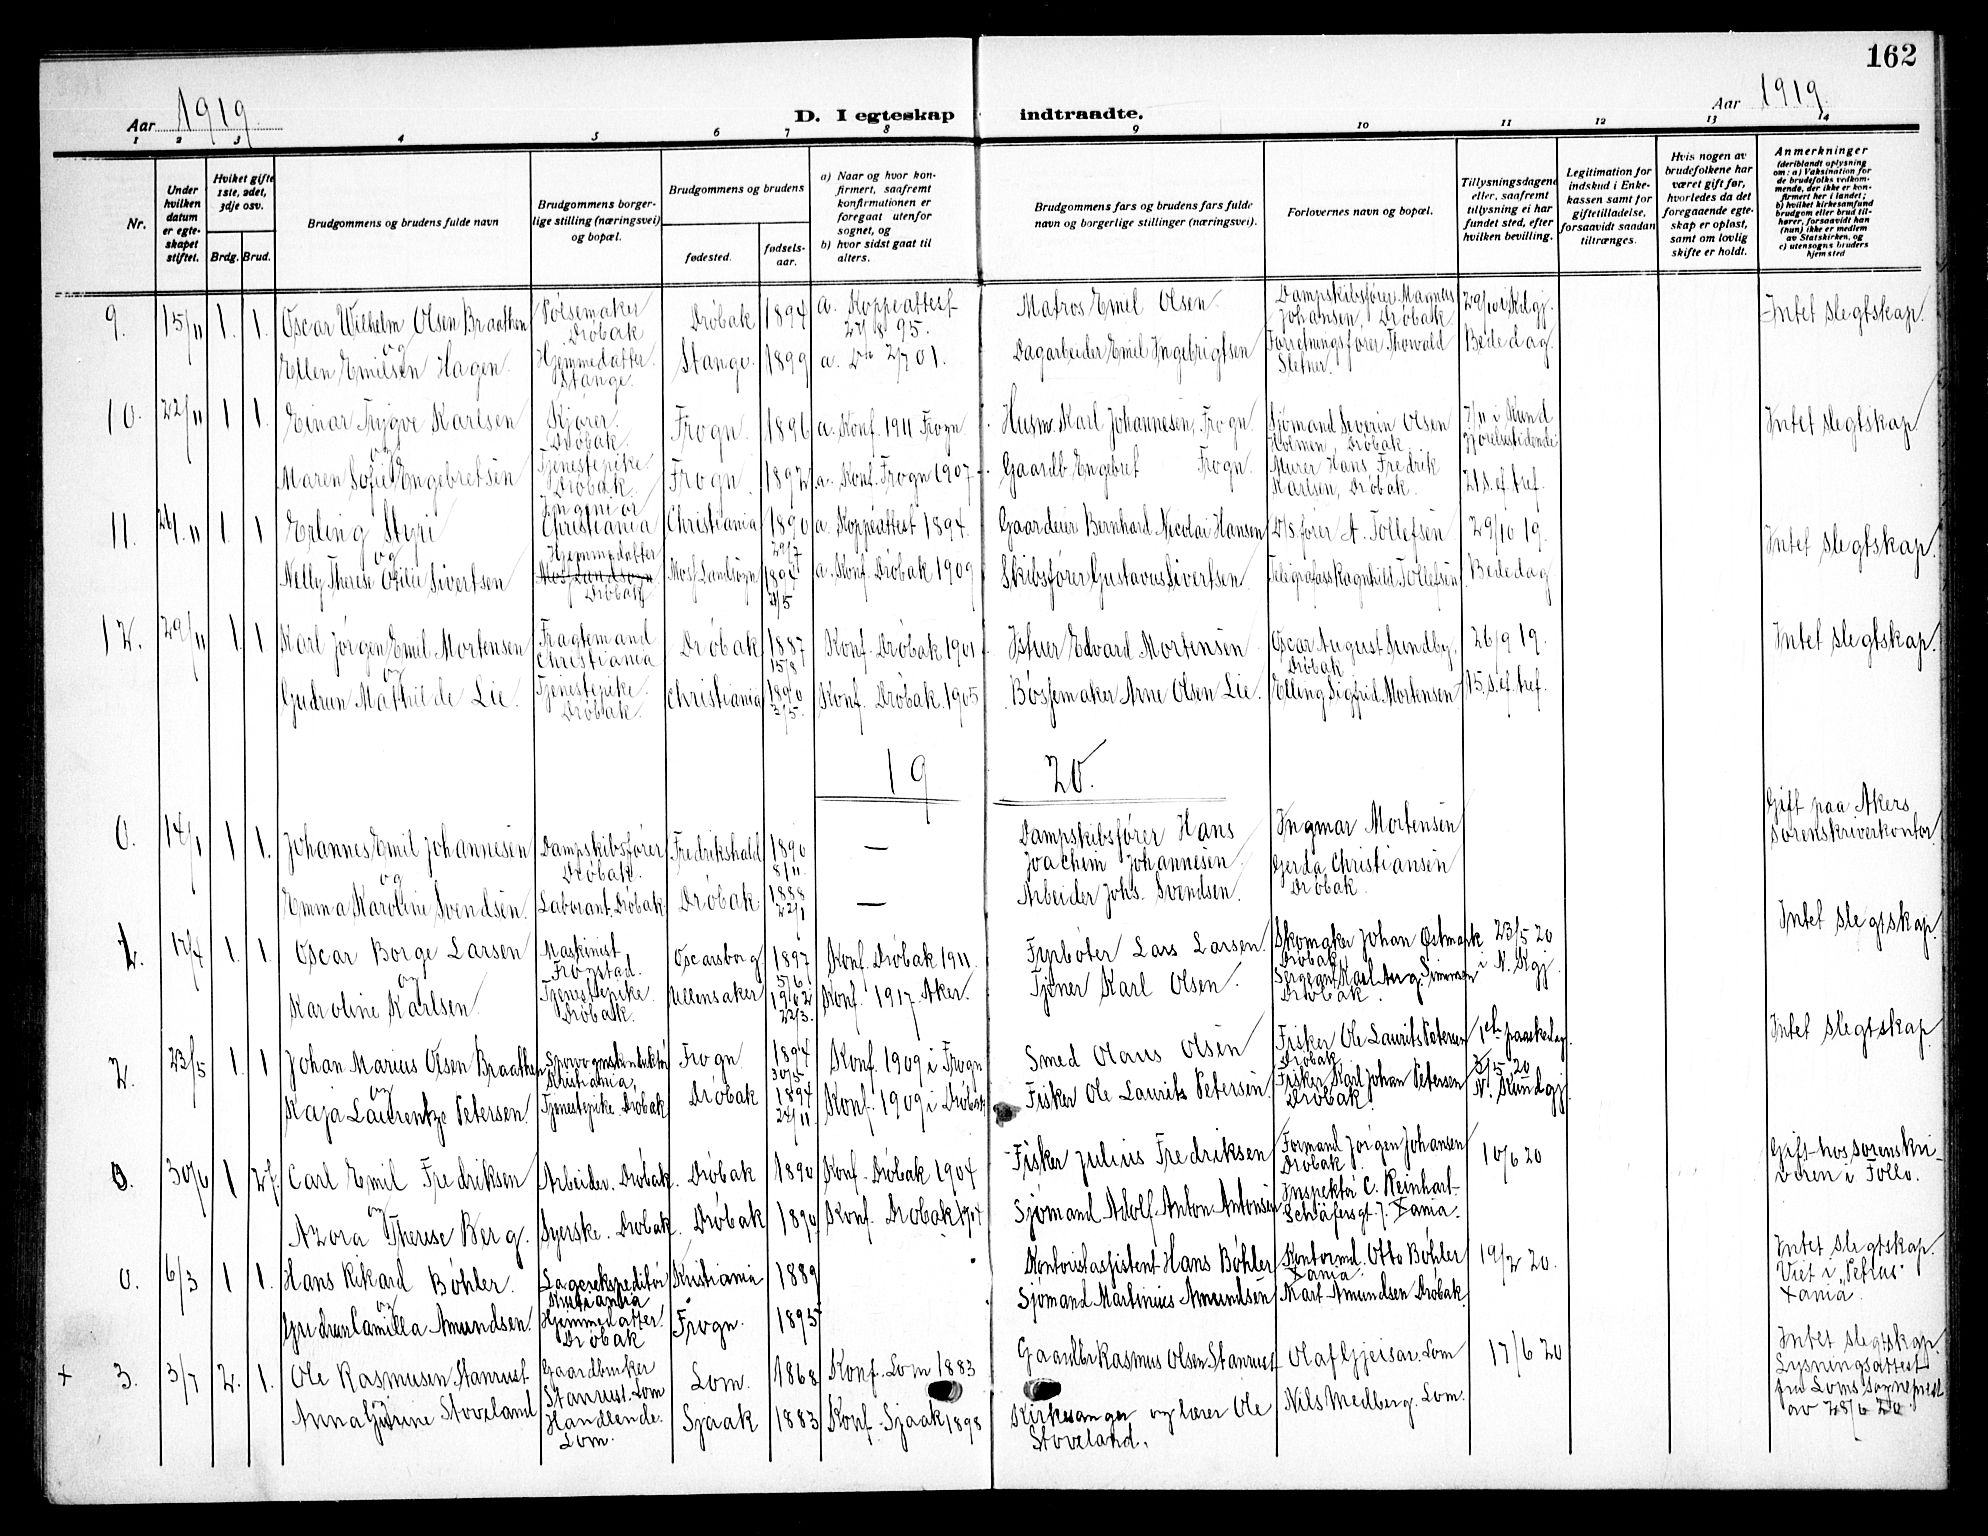 162
Aar 1919
D. I egteskap indtraadte.
Aar 1919
1 2 3 4 5 6 7 8 9 10 11 12 13 14
Nr.
Under hvilken datum er egteskapet stiftet.
Hviket gifte 1ste, 2det, 3dje osv.
Brdg. Brud.
Brudgommens og brudens fulde navn
Brudgommens borgerlige stilling (næringsvei) og bopæl.
Brudgommens og brudens
fødested.
fødselsaar.
a) Naar og hvor konfirmert, saafremt konfirmationen er foregaat utenfor sognet, og
b) hvor sidst gaat til alters.
Brudgommens fars og brudens fars fulde navn og borgerlige stillinger (næringsvei).
Forlovernes navn og bopæl.
Tillysningsdagene eller, saafremt tillysning ei har fundet sted, efter hvilken bevilling.
Legitimation for indskud i Enkekassen samt for giftetilladelse, forsaavidt saadan tiltrænges.
Hvis nogen av brudefolkene har været gift før, hvorledes da det foregaaende egteskap er opløst, samt om lovlig skifte er holdt.
Anmerkninger
(deriblandt oplysning om: a) Vaksination for de brudefolks vedkommende, der ikke er konfirmert her i landet; b) hvilket kirkesamfund brudgom eller brud tilhører, forsaavidt han (hun) ikke er medlem av Statskirken, og c) utensogns bruders hjemsted
9. 15/11 1. 1. Oscar Wilhelm Olsen Braathen Pølsemaker Drøbak Drøbak 1894 a. Koppeattest 27/8 95. Matros Emil Olsen Dampskibsfører Magnus Johansen, Drøbak 29/10 i Kdgj. Intet slegtskap.
og
Ellen Emilsen Hagen. Hjemmedatter. Stange. Stange. 1899 a. Do 2/7 01. Dagarbeider Emil Ingebrigtsen Forretningsfører Thorvald Sletner. Bededag.
10. 22/11 1 1. Einar Trygve Karlsen Kjører. Drøbak. Frogn. 1896 a. Konf. 1911 Frogn Husm. Karl Johannesen, Frogn. Sjømand Severin Olsen Holmen, Drøbak 7/11 i Kundgjørelsestidende Intet slegtskap.
og
Maren Sofie Engebretsen Tjenestepike. Drøbak. Frogn 1892 a. Konf. Frogn 1907 Gaardb Engebret Frogn. Murer Hans Fredrik Karlsen, Drøbak. 21 s. ef. tref.
11. 26/11 1. 1 Erling Styri Ingeniør Christiania Christiania 1890 29/7 a. Koppeattest 1894. Gaardeier Bernhard Nicolai Hansen Ds fører A. Tollefsen 29/10 19. Intet slegtskap.
og
Nelly Therese Otilie Sivertsen Hjemmedatter Moss Landsogn Drøbak Moss Landsogn 1894 a. Konf. Drøbak 1909 Skibsfører Gustavus Sivertsen Telegrafass Ragnhild Tollefsen Bededag
12. 29/11 1. 1 Karl Jørgen Emil Mortensen Fragtemand Christiania Drøbak 1887 15/8 Konf. Drøbak 1901 Istuer Edvard Mortensen Oscar August Sundby, Drøbak 26/9 19. Intet slegtskap.
og
Gudrun Mathilde Lie. Tjenestepike. Drøbak. Christiania 1890 2/5. Konf. Drøbak 1905 Bøssemaker Arne Olsen Lie. Elling Sigfrid Mortensen 15. s. ef. tref.
19 20.
0. 14/1 1 1. Johannes Emil Johannesen Dampskibsfører Drøbak. Fredrikshald 1890 8/11. — Dampskibsfører Hans Joachim Johannesen Ingmar Mortensen Gift paa Akers Sorenskriverkontor.
og
Emma Karoline Svendsen. Laborant. Drøbak Drøbak 1888 22/1 — Arbeider Johs. Svendsen. Gerda Christiansen Drøbak.
1. 17/4 1. 1. Oscar Borge Larsen Maskinist Frogstad. Oscarsborg 1897 5/6. Konf. Drøbak 1911 Fyrbøter Lars Larsen. Skomaker Johan Østmark Drøbak 23/5 20 i N. Kgj. Intet slegtskap.
og
Karoline Karlsen. Tjenestepike. Drøbak. Ullensaker 1902 22/3. Konf. 1917 Aker. Tjener Karl Olsen. Sergeant Karl Aug. Simensen Drøbak
2. 23/5 1. 1 Johan Marius Olsen Braathen Sporvognskonduktør Kristiania. Frogn 1894 30/5 Konf. 1909 i Frogn Smed Olaus Olsen Fisker Ole Laurits Petersen Drøbak 1ste paaskedag Intet slegtskap
og
Kaja Laurentze Petersen. Tjenestepike Drøbak Drøbak 1894 24/11 Konf. 1909 i Drøbak Fisker Ole Laurits Petersen. Fisker Karl Johan Petersen Drøbak. 3/5 20 N. Kundgj.
0. 30/6 1 2. Carl Emil Fredriksen Arbeider. Drøbak Drøbak 1890 Konf. Drøbak 1904 Fisker Julius Fredriksen Formand Jørgen Johansen Drøbak 10/6 20 Gift hos sorenskriveren i Follo.
og
Azora Therese Berg. Syerske. Drøbak Drøbak 1890 Konf. Drøbak 1904 Sjømand Adolf Anton Antonsen Inspektør C. Reinhart Schäfersgt 7. Xania.
0. 6/3 1 1. Hans Rikard Bøhler. Lagerekspeditør Kristiania Kristiania 1889 Kontoristassistent Hans Bøhler Kontormd. Otto Bøhler Xania. 19/2 20. Intet slegtskap. Viet i "Petrus" Xania.
og
Gudrun Camilla Amundsen. Hjemmedatter. Drøbak Frogn. 1895 Sjømand Martinius Amundsen Karl Amundsen Drøbak.
+ 3. 3/7 2. 1. Ole Rasmusen Stamrust Gaardbruker Stamrust. Lom Lom. 1868 Konf. Lom 1883 Gaardbr Rasmus Olsen Stamrust Olaf Gjeisar. Lom 17/6 20 Intet slegtskap Lysningsattest fra Loms sogneprest av 28/6 20.
og
Anna Stoveland Handlende. Lom. Sjaak 1883 Konf. Sjaak 1898 Kirkesanger og lærer Ole Stoveland. Nils Medberg. Lom.